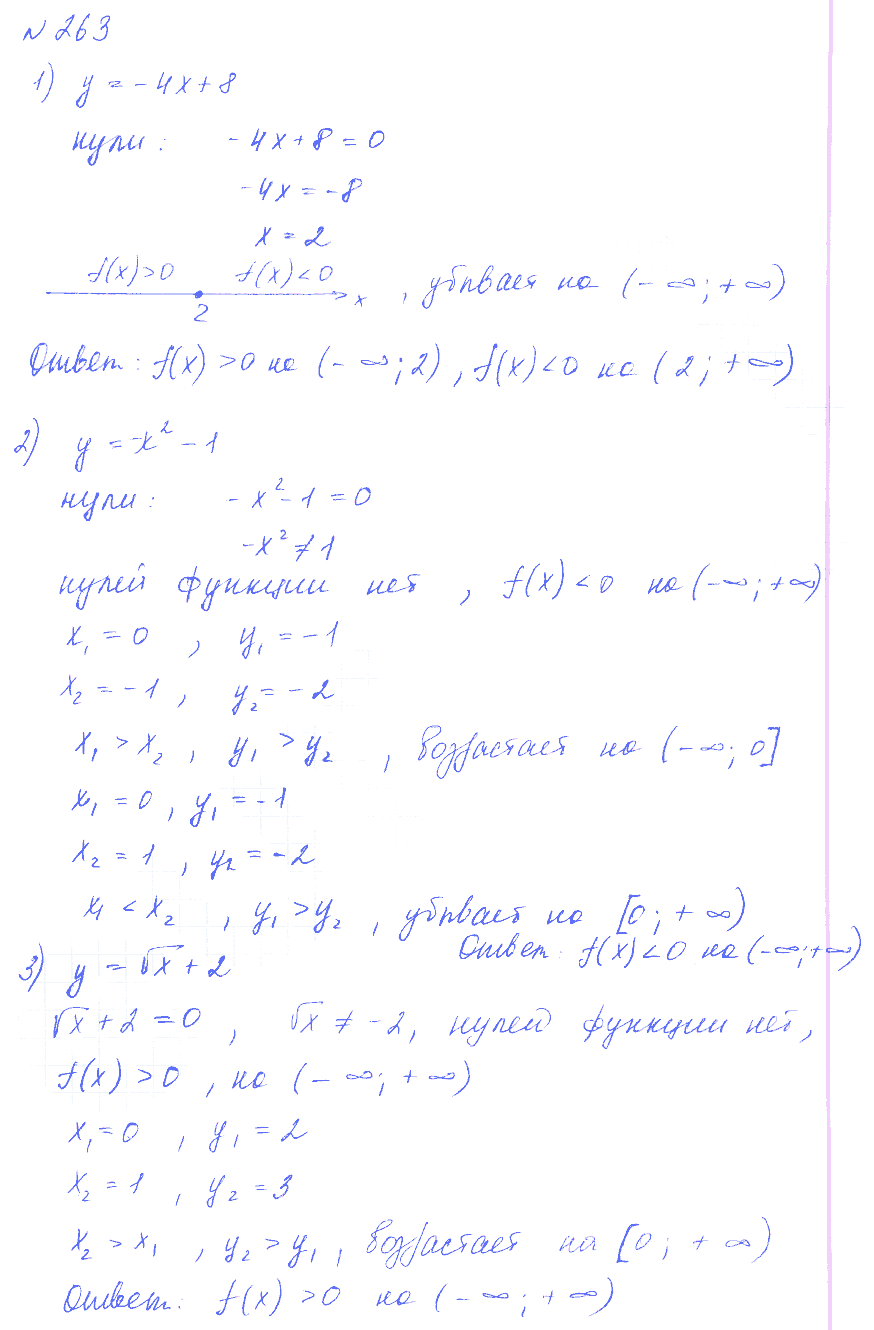 № 263
1) y = -4x + 8
нули: -4x + 8 = 0
-4x = -8
x = 2
f(x) > 0 f(x) < 0
2 x , убывает на (-∞; +∞)
Ответ: f(x) > 0 на (-∞; 2), f(x) < 0 на (2; +∞)
2) y = -x² - 1
нули: -x² - 1 = 0
-x² ≠ 1
нулей функции нет , f(x) < 0 на (-∞; +∞)
x₁ = 0 , y₁ = -1
x₂ = -1 , y₂ = -2
x₁ > x₂ , y₁ > y₂ , возрастает на (-∞; 0]
x₁ = 0 , y₁ = -1
x₂ = 1 , y₂ = -2
x₁ < x₂ , y₁ > y₂ , убывает на [0; +∞)
Ответ: f(x) < 0 на (-∞; +∞)
3) y = √x + 2
√x + 2 = 0 , √x ≠ -2, нулей функции нет,
f(x) > 0 , на (-∞; +∞)
x₁ = 0 , y₁ = 2
x₂ = 1 , y₂ = 3
x₂ > x₁ , y₂ > y₁ , возрастает на [0; +∞)
Ответ: f(x) > 0 на (-∞; +∞)